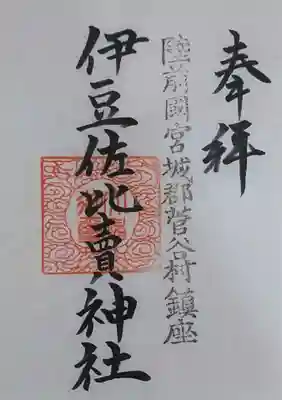 奉拝
陸前國宮城郡菅谷村鎮座
伊豆佐比賣神社